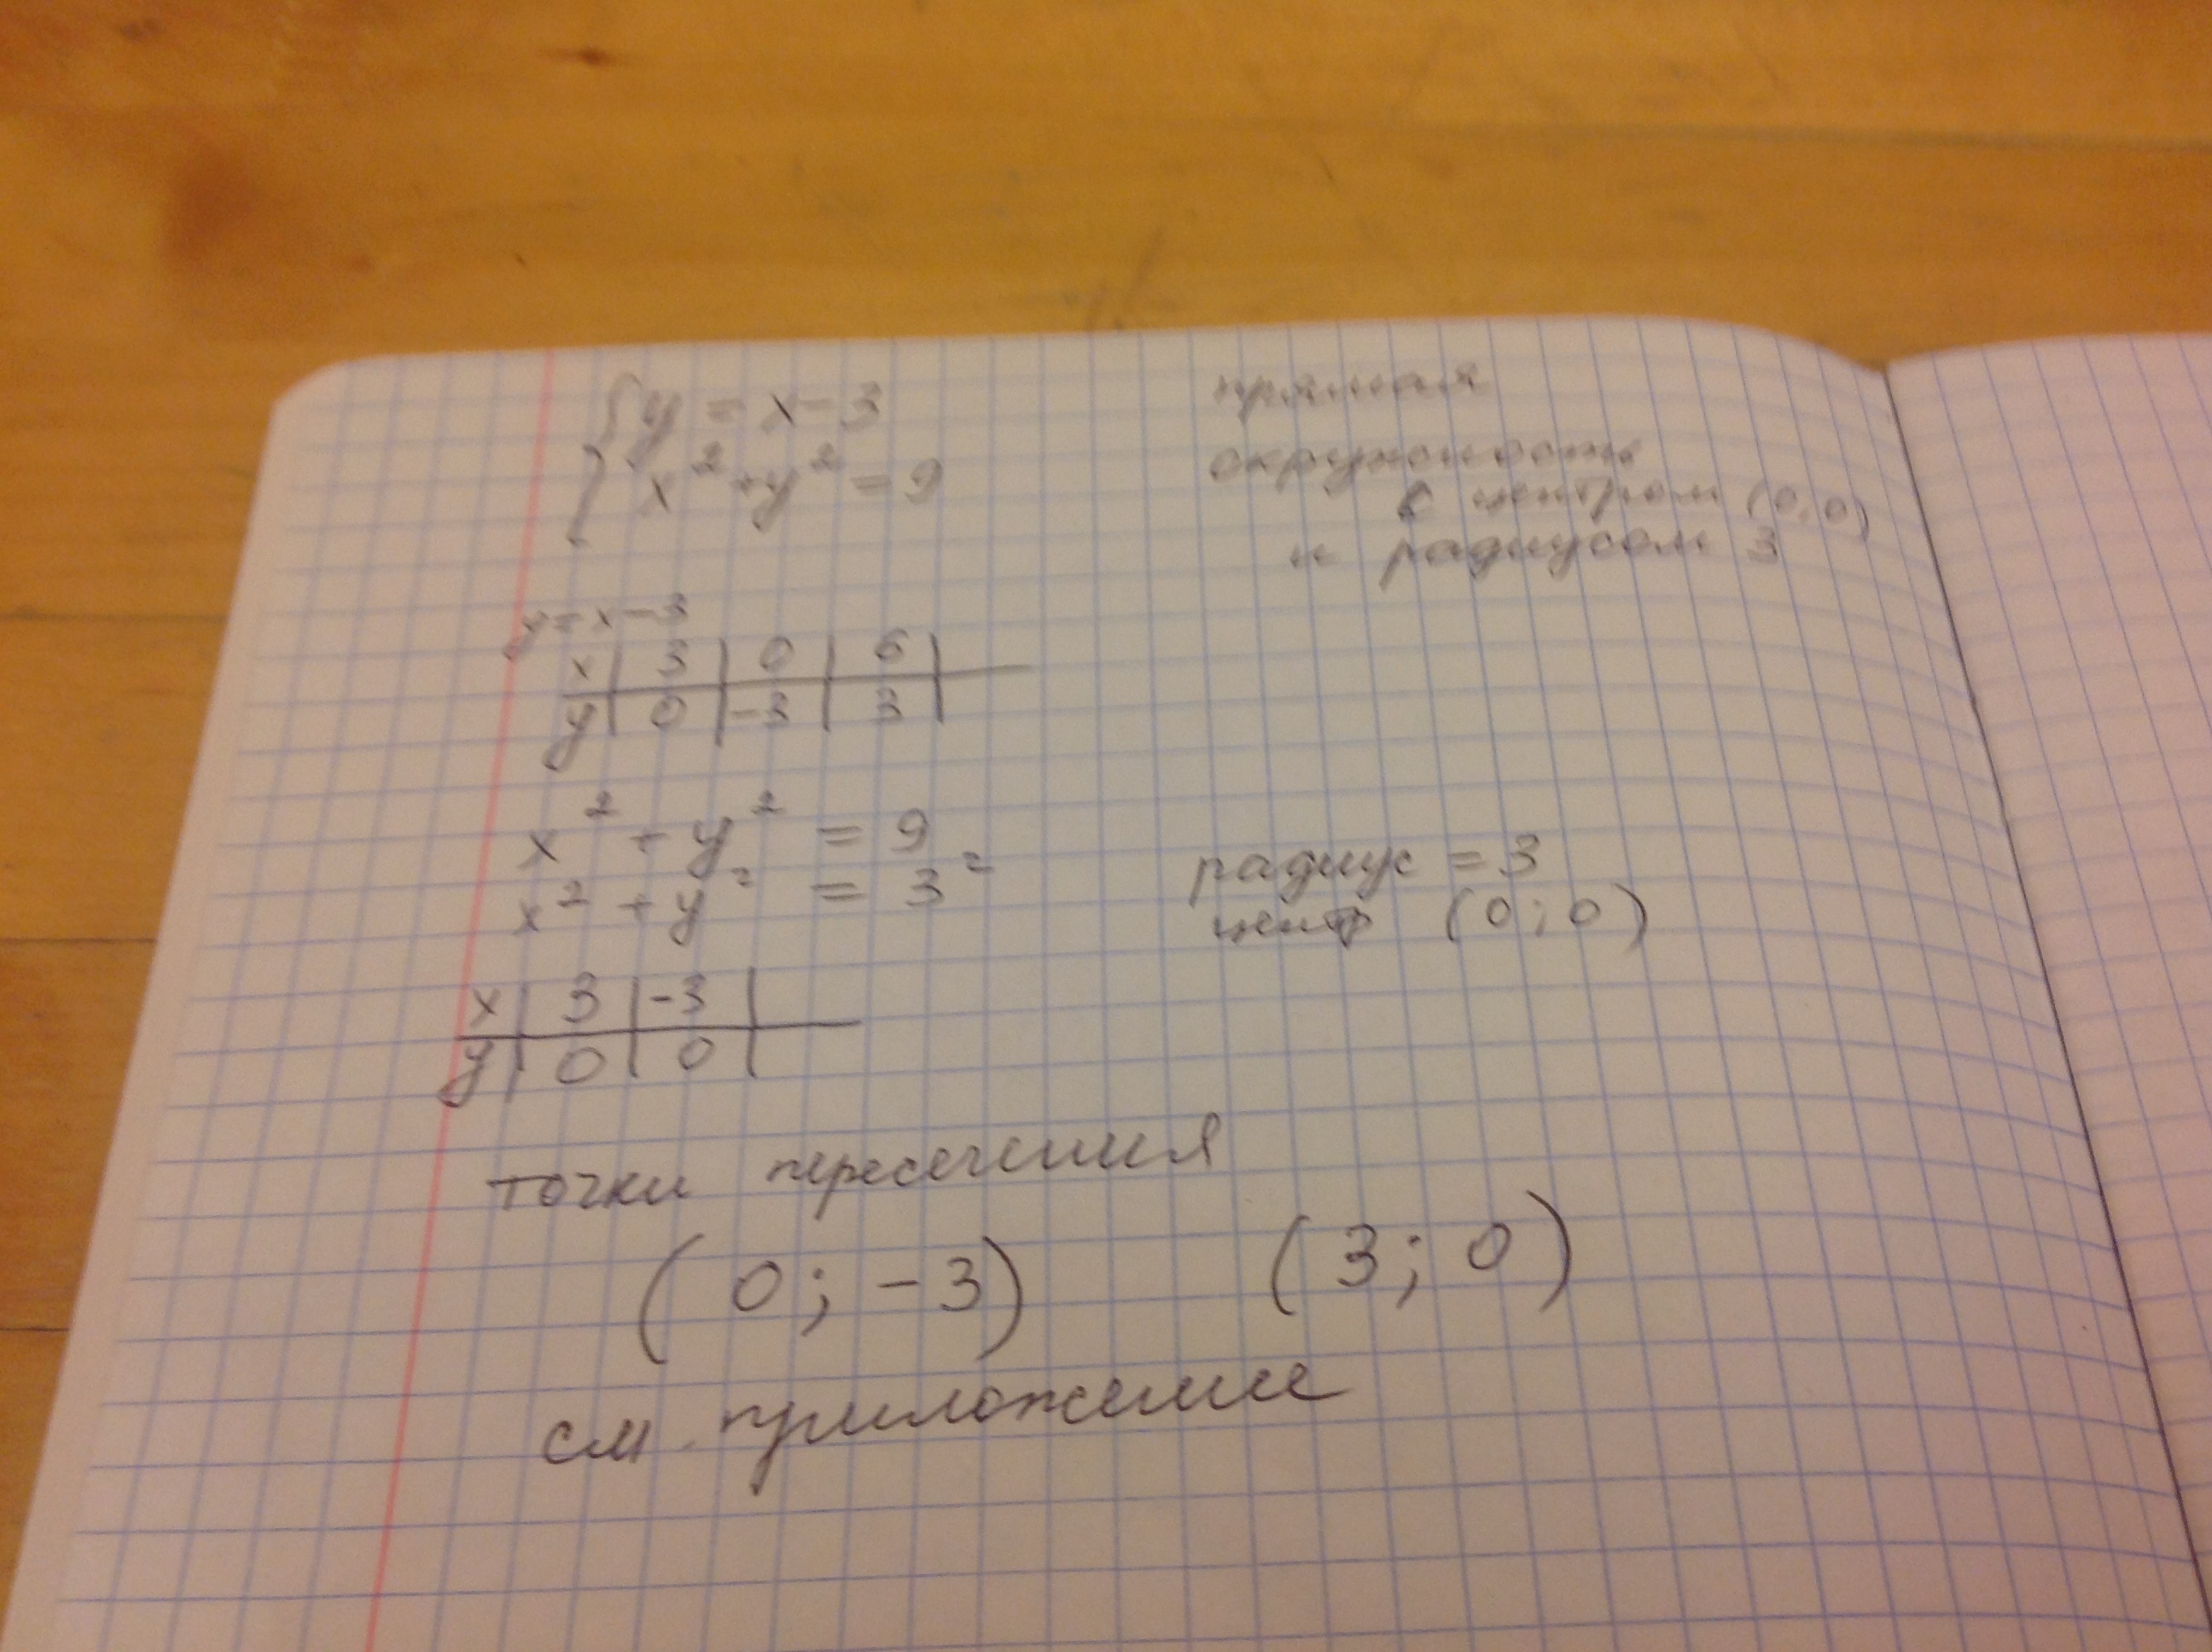 { y = x - 3 прямая
x² + y² = 9 окружность
с центром (0;0)
и радиусом 3
y = x - 3
x | 3 | 0 | 6 |
y | 0 | -3 | 3 |
x² + y² = 9
x² + y² = 3² радиус = 3
центр (0;0)
x | 3 | -3 |
y | 0 | 0 |
точки пересечения
(0; -3) (3; 0)
см. приложение